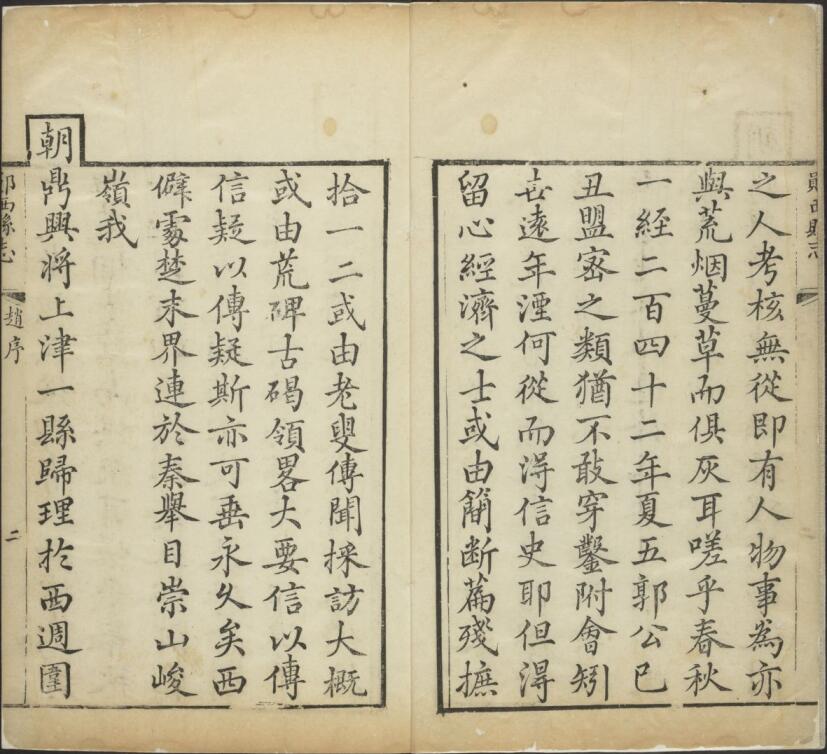 鄖西縣志
之人考核無從即有人物事為亦
與荒烟蔓草而俱灰耳嗟乎春秋
一經二百四十二年夏五郭公已
丑盟宻之類猶不敢穿鑿附會矧
世遠年湮何從而得信史耶但得
留心經濟之士或由簡断篇殘摭
拾一二或由老叟傳聞採訪大概
或由荒碑古碣領畧大要信以傳
信疑以傳疑斯亦可垂永久矣西
僻處楚末界連於秦舉目崇山峻
嶺我
朝鼎興将上津一縣歸理於西週圍
鄖西縣志
趙序
二